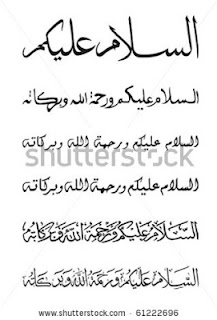 السلام عليكم
السلام عليكم ورحمة الله وبركاته
السلام عليكم ورحمة الله وبركاته
shutterstock
السلام عليكم ورحمة الله وبركاته
السَّلامُ عَلَيْكُمْ وَرَحْمَةُ اللهِ وَبَرَكَاتُهُ
السَّلامُ عَلَيْكُمْ وَرَحْمَةُ اللهِ وَبَرَكَاتُهُ
www.shutterstock.com · 61222696